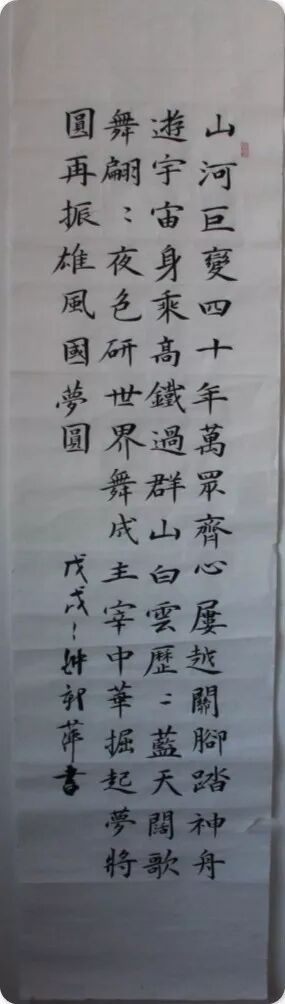 山河巨變四十年萬眾齊心屢越關腳踏神舟
遊宇宙身乘高鐵過群山白雲歷〻藍天闊歌
舞翩〻夜色研世界舞成主宰中華掘起夢將
圓再振雄風國夢圓
戊戌 萍書